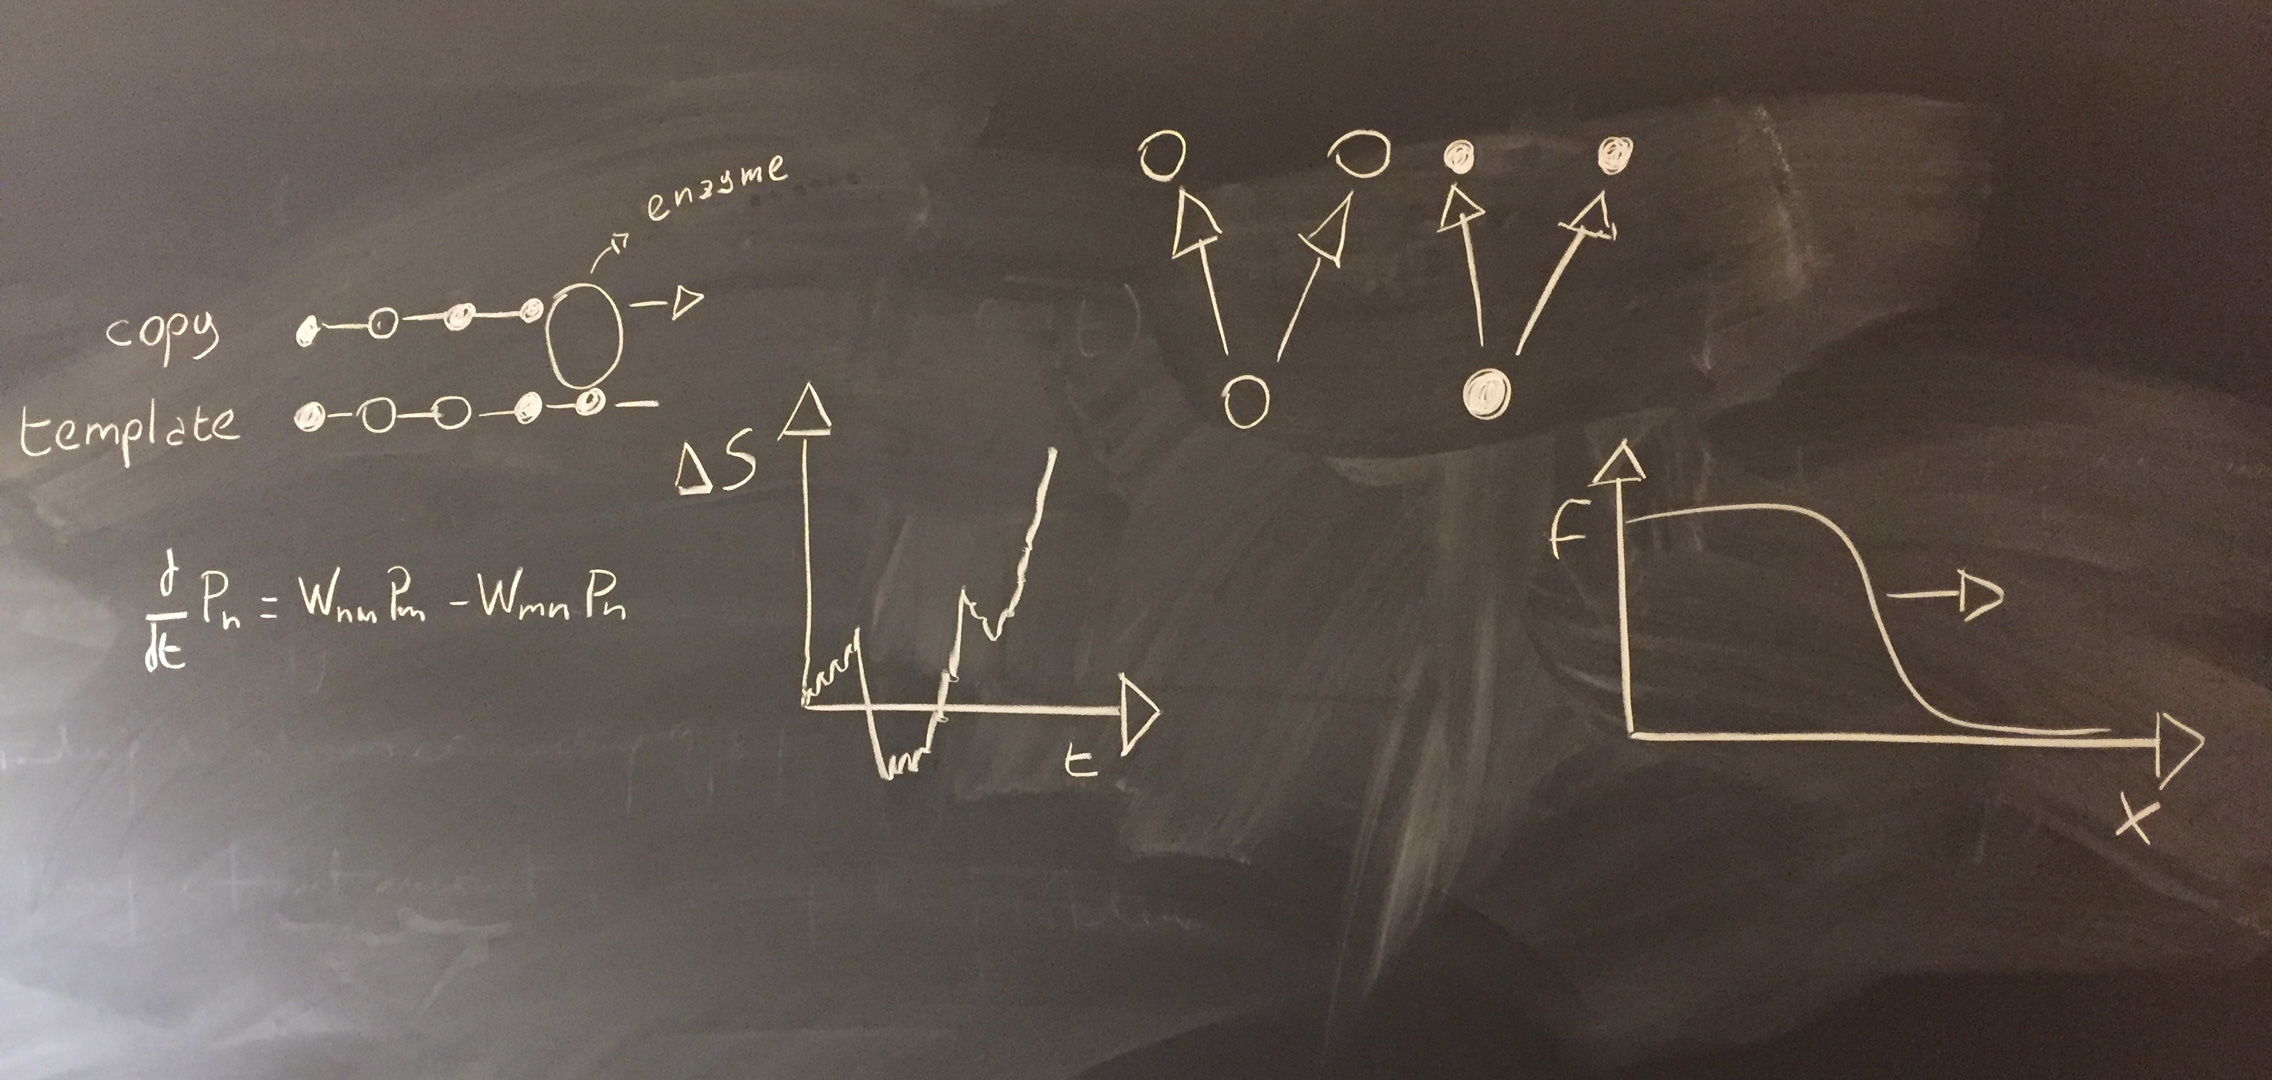 enzyme
copy
template
ΔS
t
d/dt Pₙ = Wₙₘ Pₘ - Wₘₙ Pₙ
F
x